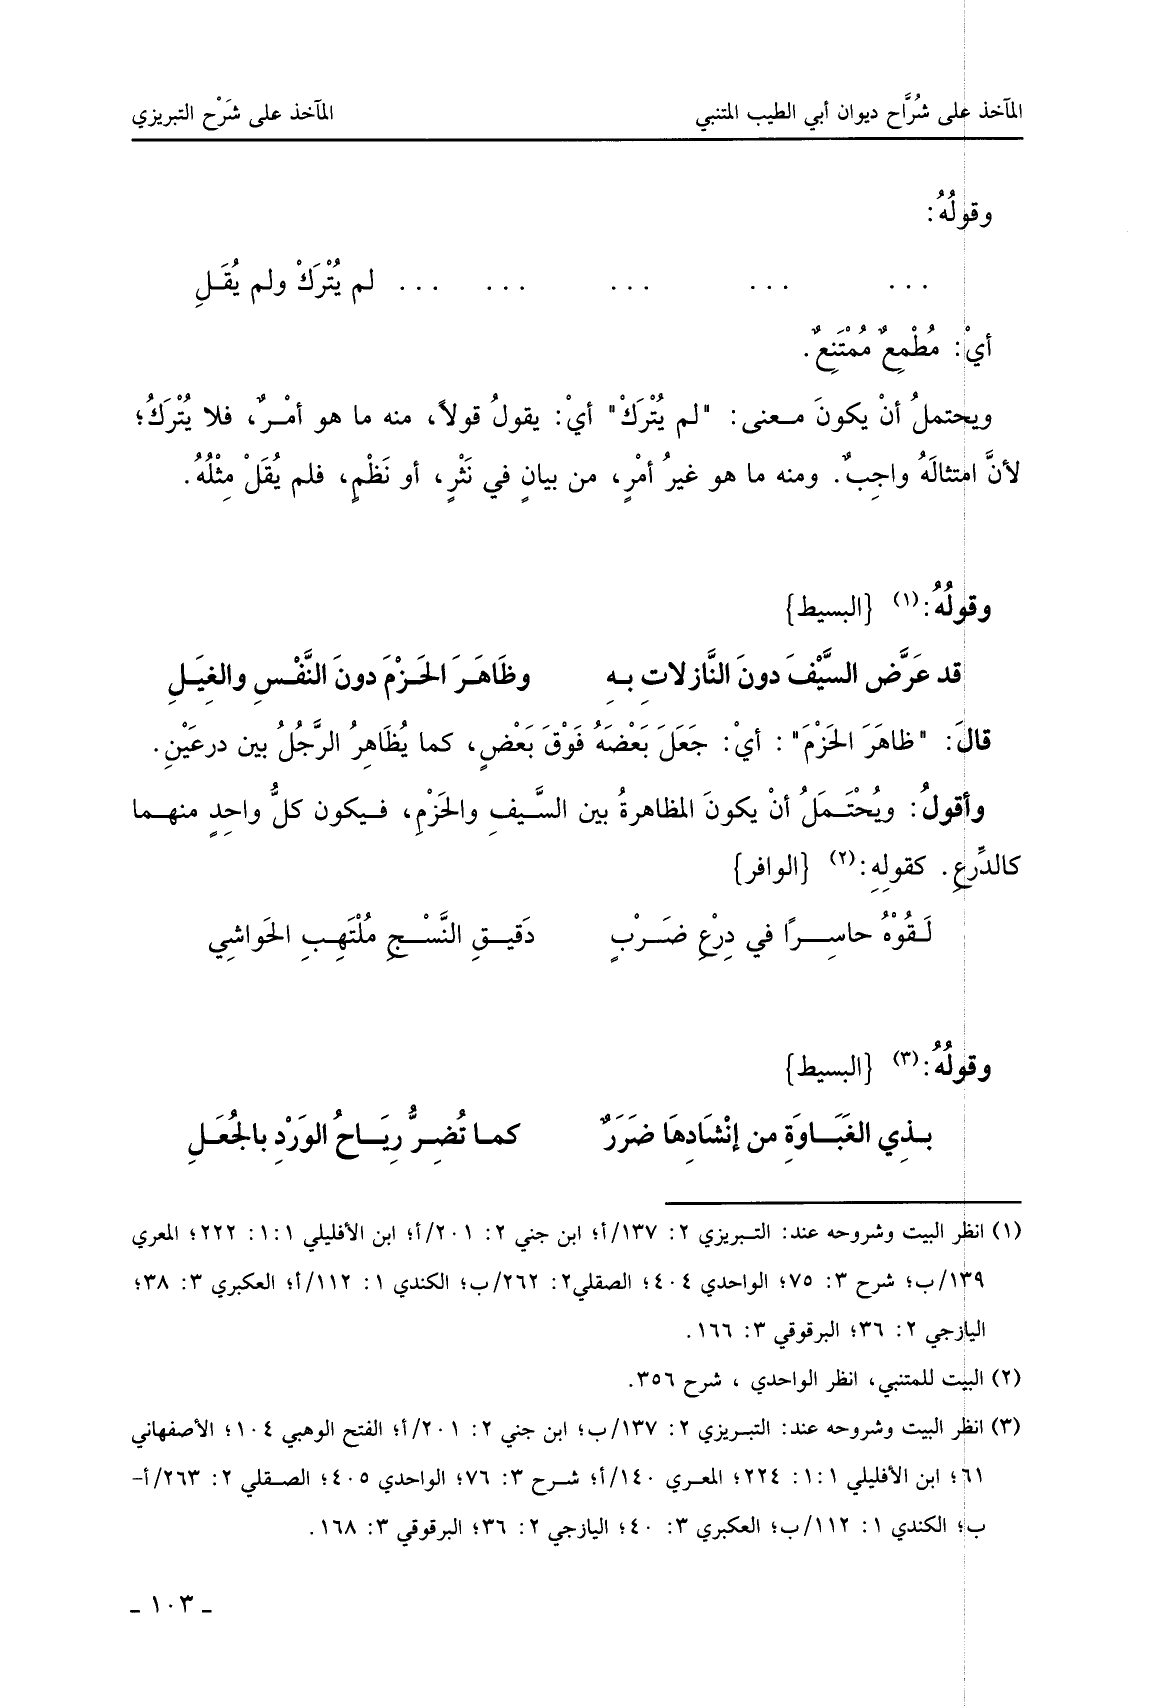 المآخذ على شُرَّاح ديوان أبي الطيب المتنبي المآخذ على شَرْح التبريزي
وقولُهُ:
... ... ... ... ... لم يُتْرَكْ ولم يُقَـلِ
أيْ: مُطْمِعٌ مُمْتَنِعٌ.
ويحتملُ أنْ يكونَ مـعنى: "لم يُتْرَكْ" أيْ: يقولُ قولاً، منه ما هو أمْـرٌ، فلا يُتْرَكُ؛
لأنَّ امتثالَهُ واجِبٌ. ومنه ما هو غيرُ أمْرٍ، من بيانٍ في نَثْرٍ، أو نَظْمٍ، فلم يُقَلْ مِثْلُهُ.
وقولُهُ:(١) {البسيط}
قد عَرَّض السَّيْفَ دونَ النَّازلاتِ بـهِ وظَاهَـرَ الحَـزْمَ دونَ النَّفْـسِ والغِيَـلِ
قالَ: "ظاهَرَ الحَزْمَ" : أيْ: جَعَلَ بَعْضَهُ فَوْقَ بَعْضٍ، كما يُظَاهِرُ الرَّجُلُ بين درعَيْنِ.
وأقولُ: ويُحْتَـمَلُ أنْ يكونَ المظاهرةُ بين السَّـيفِ والحَزْمِ، فـيكون كلُّ واحِدٍ منهـما
كالدِّرعِ. كقولِهِ:(٢) {الوافر}
لَـقُوْهُ حاسِـرًا في دِرْعِ ضَـرْبٍ دَقيـقِ النَّسْـجِ مُلْتَهِـبِ الحَواشِي
وقولُهُ:(٣) {البسيط}
بـذِي الغَبَـاوَةِ من إنْشَادِهَا ضَرَرٌ كمـا تُضِـرُّ رِيَـاحُ الوَرْدِ بالجُعَـلِ
(١) انظر البيت وشروحه عند: التـبريزي ٢: ١٣٧/أ؛ ابن جني ٢: ٢٠١/أ؛ ابن الأفليلي ١:١: ٢٢٢؛ المعري
١٣٩/ب؛ شرح ٣: ٧٥؛ الواحدي ٤٠٤؛ الصقلي٢: ٢٦٢/ب؛ الكندي ١: ١١٢/أ؛ العكبري ٣: ٣٨؛
اليازجي ٢: ٣٦؛ البرقوقي ٣: ١٦٦.
(٢) البيت للمتنبي، انظر الواحدي ، شرح ٣٥٦.
(٣) انظر البيت وشروحه عند: التبـريزي ٢: ١٣٧/ب؛ ابن جني ٢: ٢٠١/أ؛ الفتح الوهبي ١٠٤؛ الأصفهاني
٦١؛ ابن الأفليلي ١:١: ٢٢٤؛ المعري ١٤٠/أ؛ شـرح ٣: ٧٦؛ الواحدي ٤٠٥؛ الصـقلي ٢: ٢٦٣/أ-
ب؛ الكندي ١: ١١٢/ب؛ العكبري ٣: ٤٠؛ اليازجي ٢: ٣٦؛ البرقوقي ٣: ١٦٨.
ـ ١٠٣ ـ